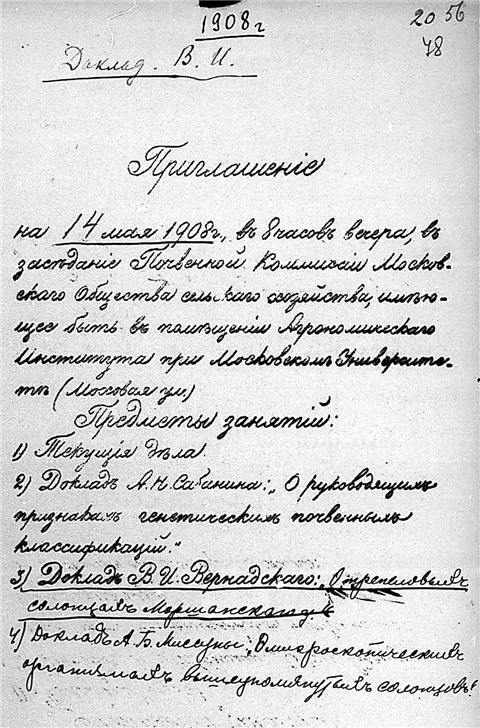 1908 г
20 56
48
Доклад. В. И.
Приглашеніе
на 14 мая 1908 г., въ 8 часовъ вечера, въ
засѣданіе Почвенной Коммиссіи Москов-
скаго Общества сельскаго хозяйства, имѣю-
щее быть въ помѣщеніи Агрономическаго
Института при Московскомъ Университе-
тѣ (Моховая ул.)
Предметы занятій:
1) Текущія дѣла.
2) Докладъ А. Н. Сабанина: „О руководящихъ
признакахъ генетическихъ почвенныхъ
классификацій."
3) Докладъ В. И. Вернадскаго: „О трепеловыхъ
солонцахъ Моршанскаго у
4) Докладъ А. Б. Миссуны: „О микроскопическихъ
организмахъ вышеупомянутыхъ солонцовъ."